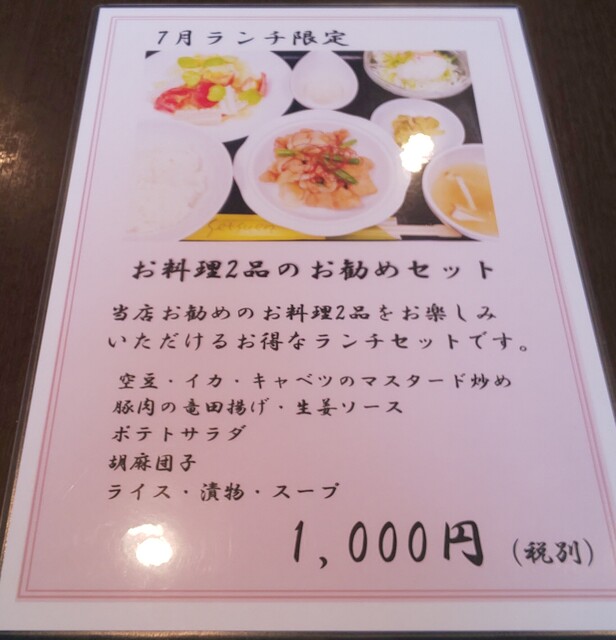 7月ランチ限定
お料理2品のお勧めセット
当店お勧めのお料理2品をお楽しみ
いただけるお得なランチセットです。
空豆・イカ・キャベツのマスタード炒め
豚肉の竜田揚げ・生姜ソース
ポテトサラダ
胡麻団子
ライス・漬物・スープ
1,000円 (税別)